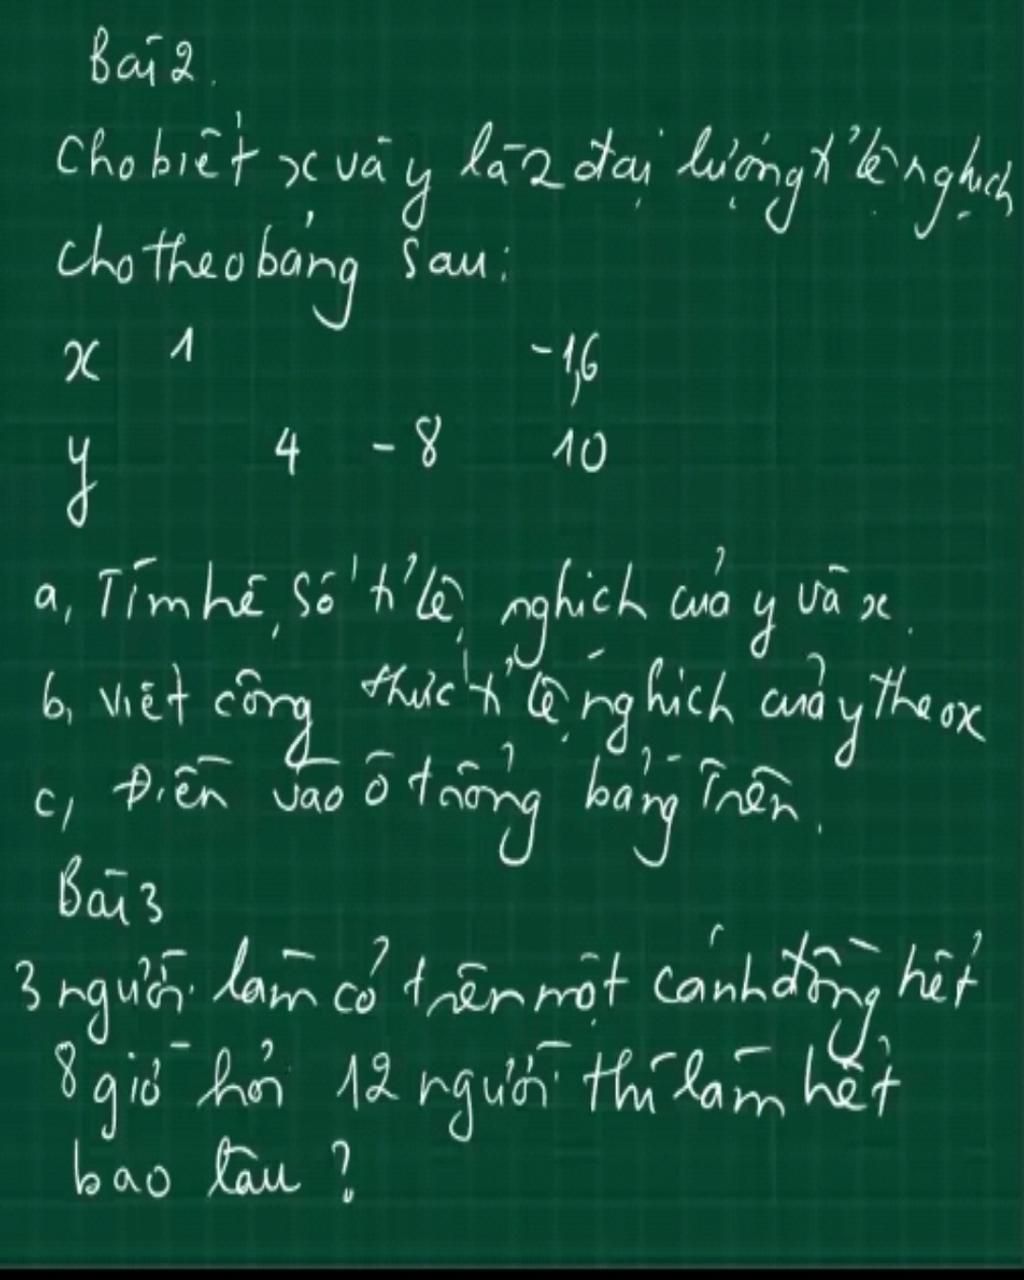 Bài 2.
Cho biết x và y là 2 đại lượng tỉ lệ nghịch
Cho theo bảng sau:
x 1 -1,6
y 4 -8 10
a, Tìm hệ số tỉ lệ nghịch của y và x.
b, Viết công thức tỉ lệ nghịch của y theo x
c, Điền vào ô trống bảng trên.
Bài 3
3 người làm cỏ trên một cánh đồng hết
8 giờ hỏi 12 người thì làm hết
bao lâu ?